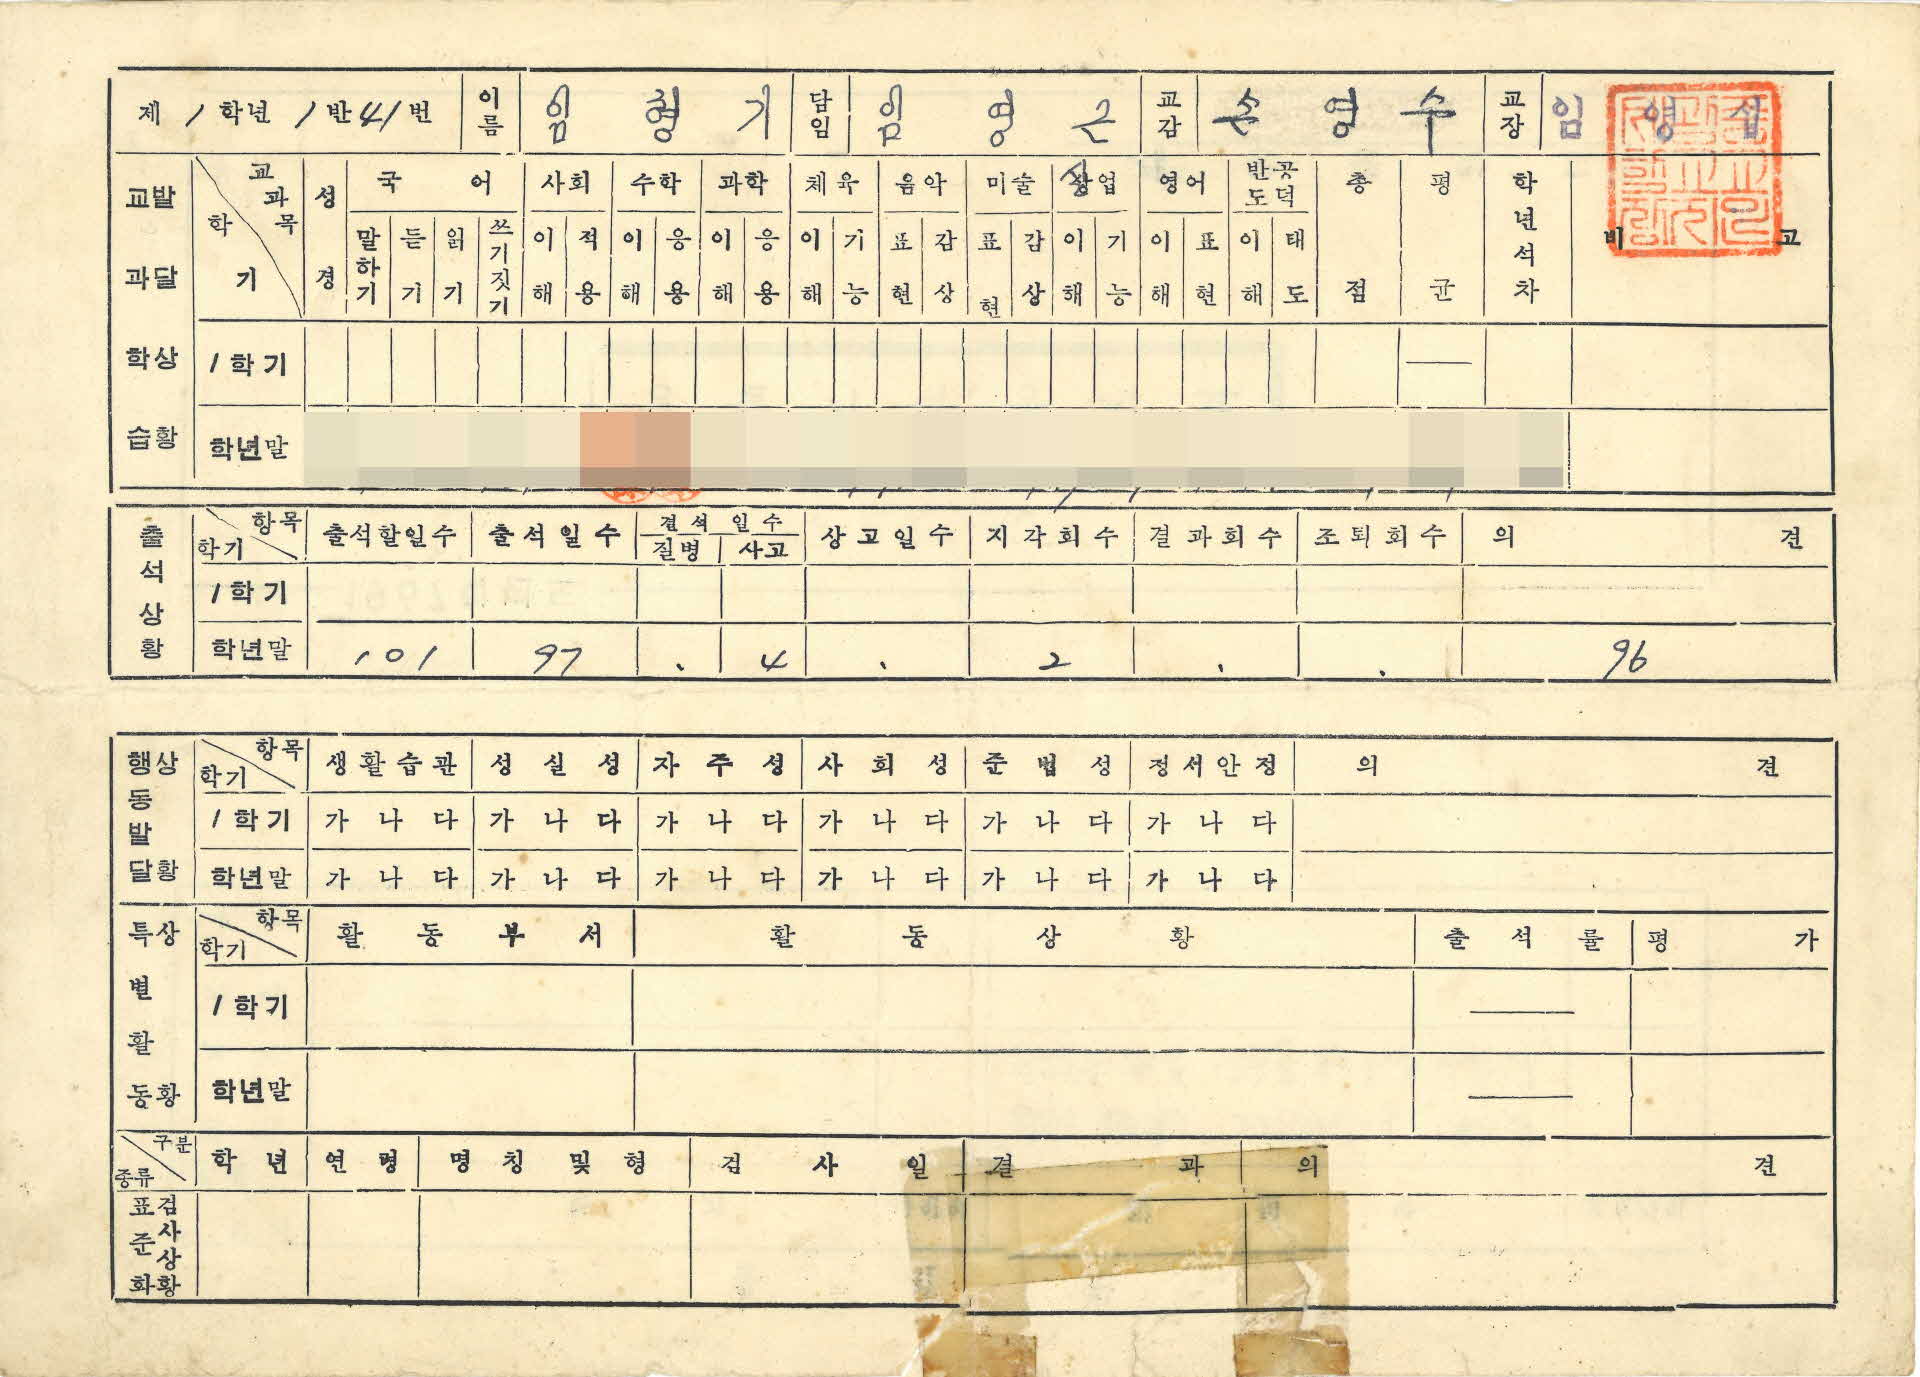 제 1 학년 1 반 41 번 이름 임형기 담임 임영근 교감 손영수 교장 임영섭
교과학습 발달상황 교과목 학기 성경 국어 사회 수학 과학 체육 음악 미술 상업 영어 반공도덕 총점 평균 학년석차 비고
말하기 듣기 읽기 쓰기짓기 이해 적용 이해 응용 이해 응용 이해 기능 표현 감상 표현 감상 이해 기능 이해 표현 이해 태도
1학기
학년말
출석상황 항목 학기 출석할일수 출석일수 결석일수 질병 사고 상고일수 지각회수 결과회수 조퇴회수 의견
1학기
학년말 101 97 . 4 . 2 . . 96
행동발달상황 항목 학기 생활습관 성실성 자주성 사회성 준법성 정서안정 의견
1학기 가 나 다 가 나 다 가 나 다 가 나 다 가 나 다 가 나 다
학년말 가 나 다 가 나 다 가 나 다 가 나 다 가 나 다 가 나 다
특별활동상황 항목 학기 활동부서 활동상황 출석률 평가
1학기
학년말
구분 종류 학년 연령 명칭 및 형 검사일 결과 의견
표준화검사상황